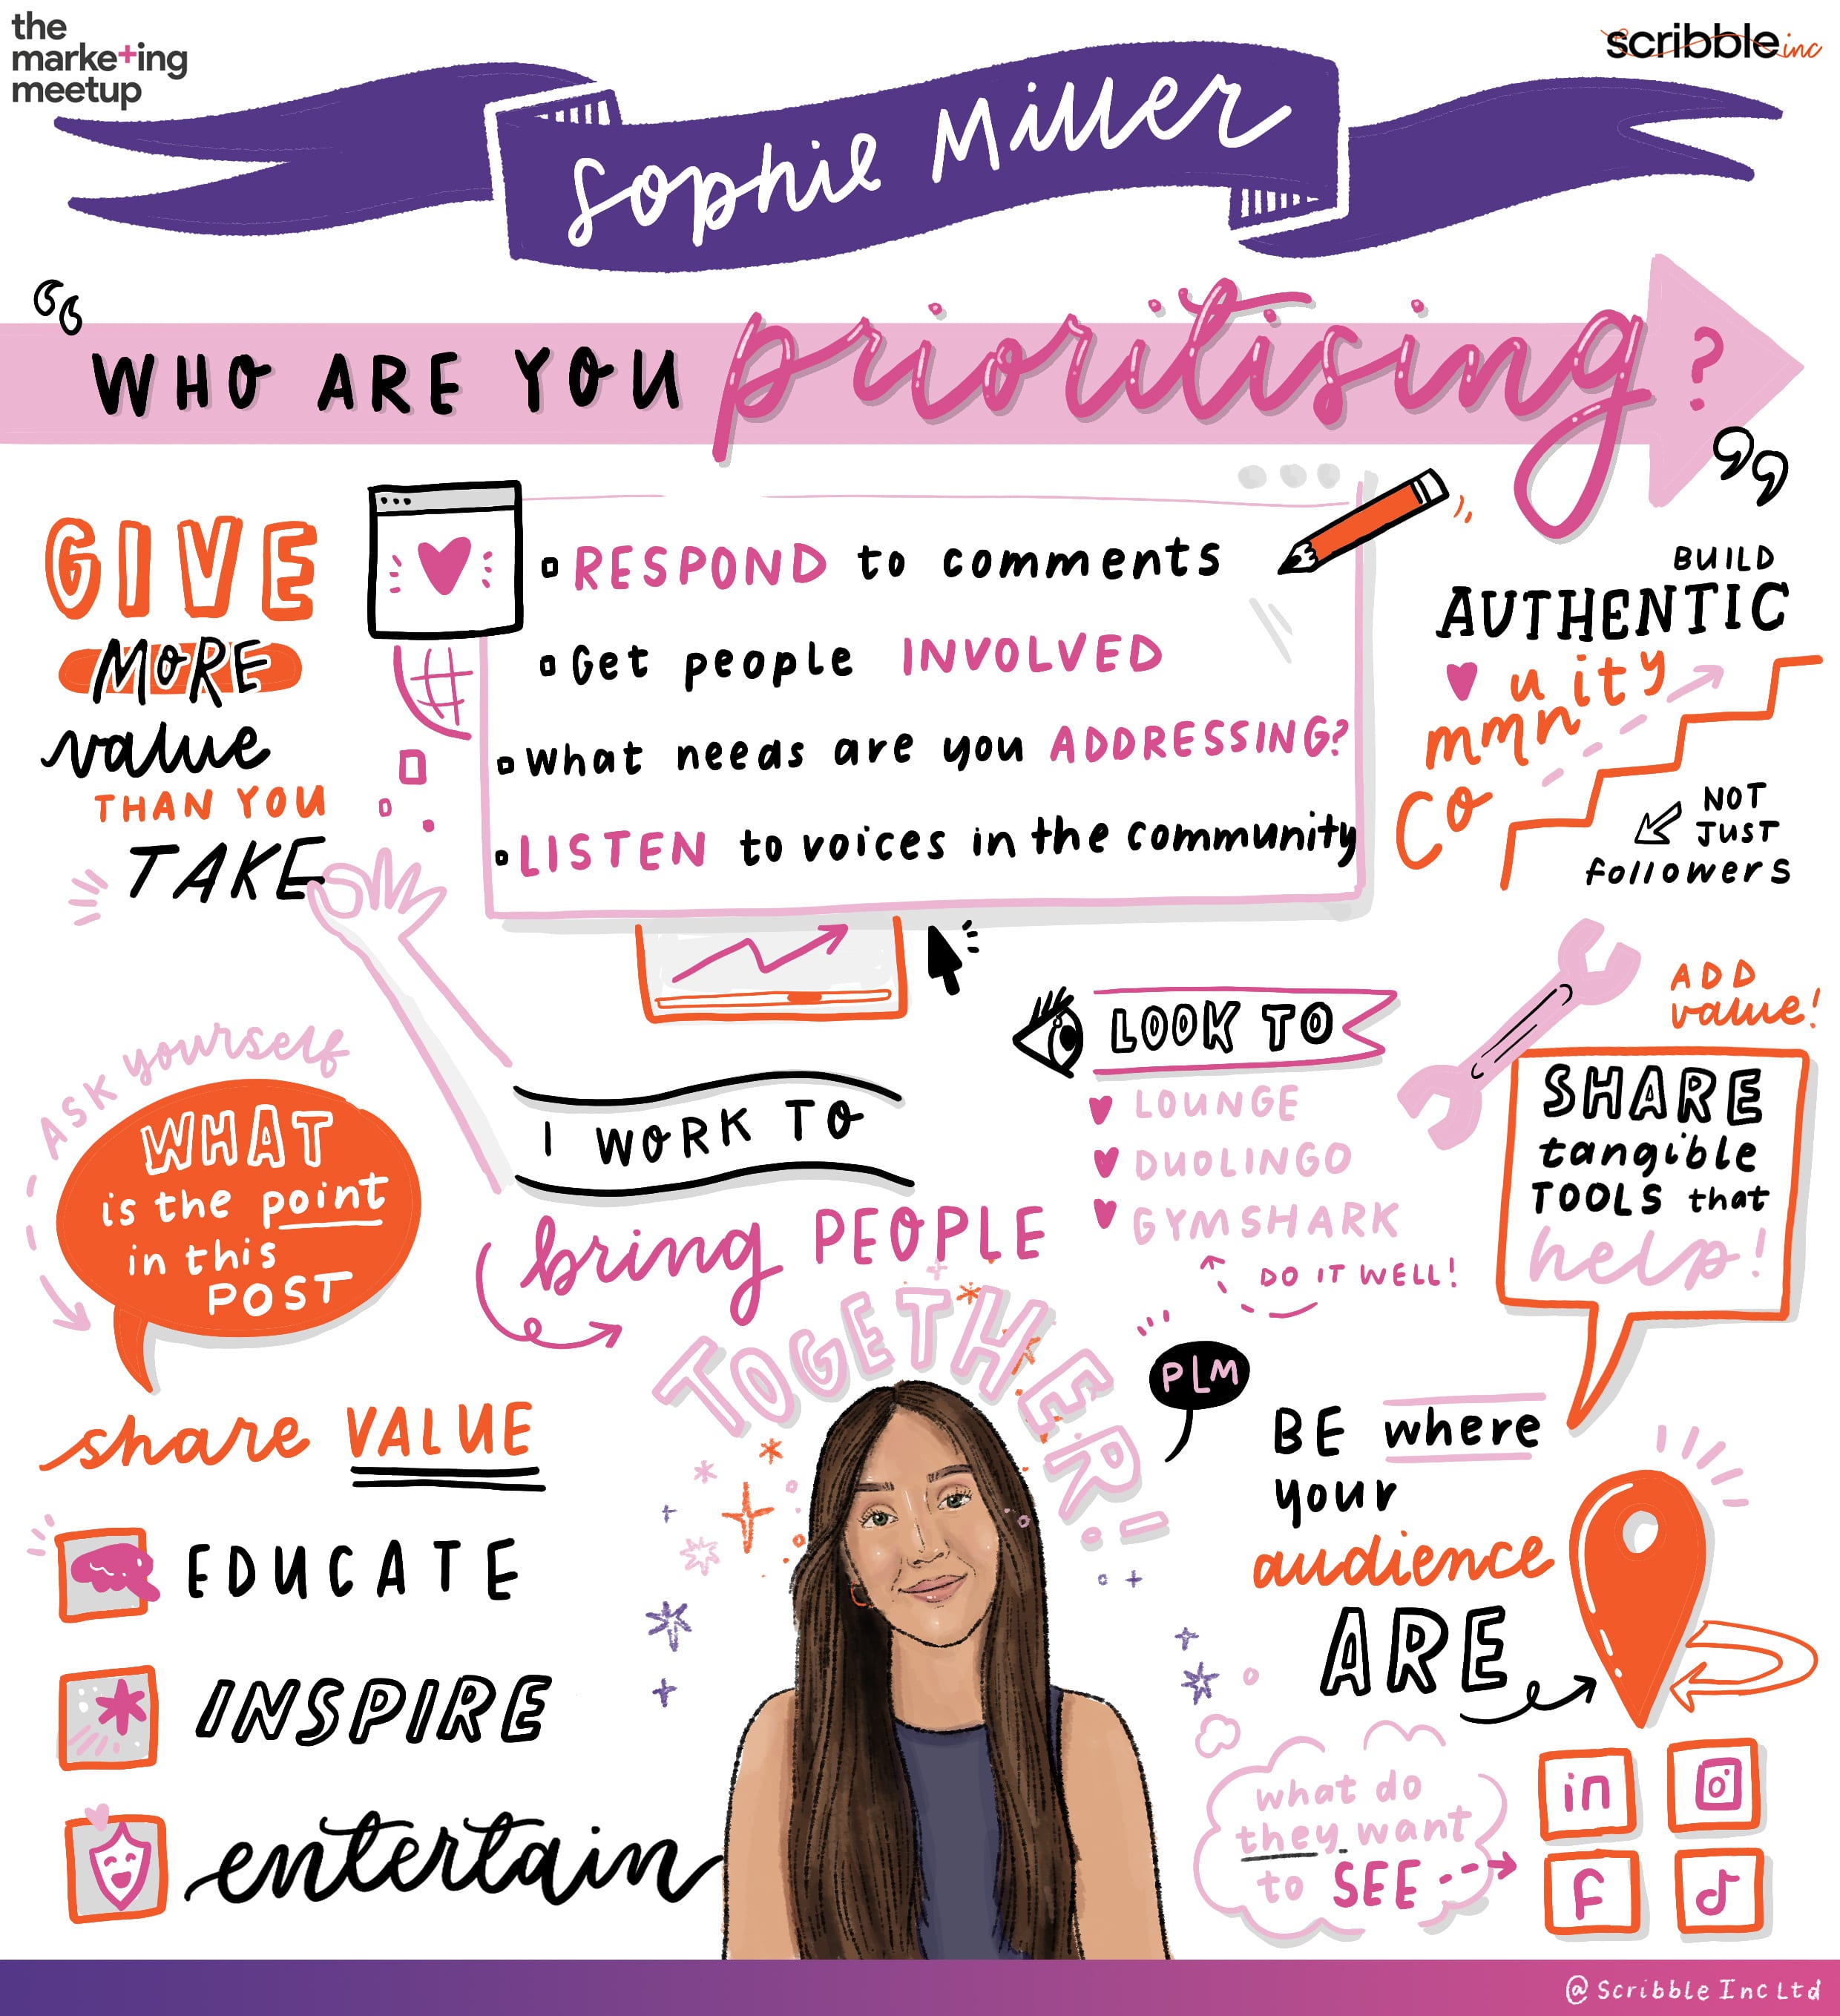 the
marke+ing
meetup
scribble inc
Sophie Miller
“WHO ARE YOU prioritising?”
GIVE
MORE
value
THAN YOU
TAKE
RESPOND to comments
Get people INVOLVED
What needs are you ADDRESSING?
LISTEN to voices in the community
BUILD
AUTHENTIC
community
NOT
JUST
followers
ASK yourself
WHAT
is the point
in this
POST
I WORK TO
bring PEOPLE
TOGETHER!
LOOK TO
LOUNGE
DUOLINGO
GYMSHARK
DO IT WELL!
ADD
value!
SHARE
tangible
TOOLS that
help!
PLM
share VALUE
EDUCATE
INSPIRE
entertain
BE where
your
audience
ARE
what do
they want
to SEE
in
f
@ Scribble Inc Ltd